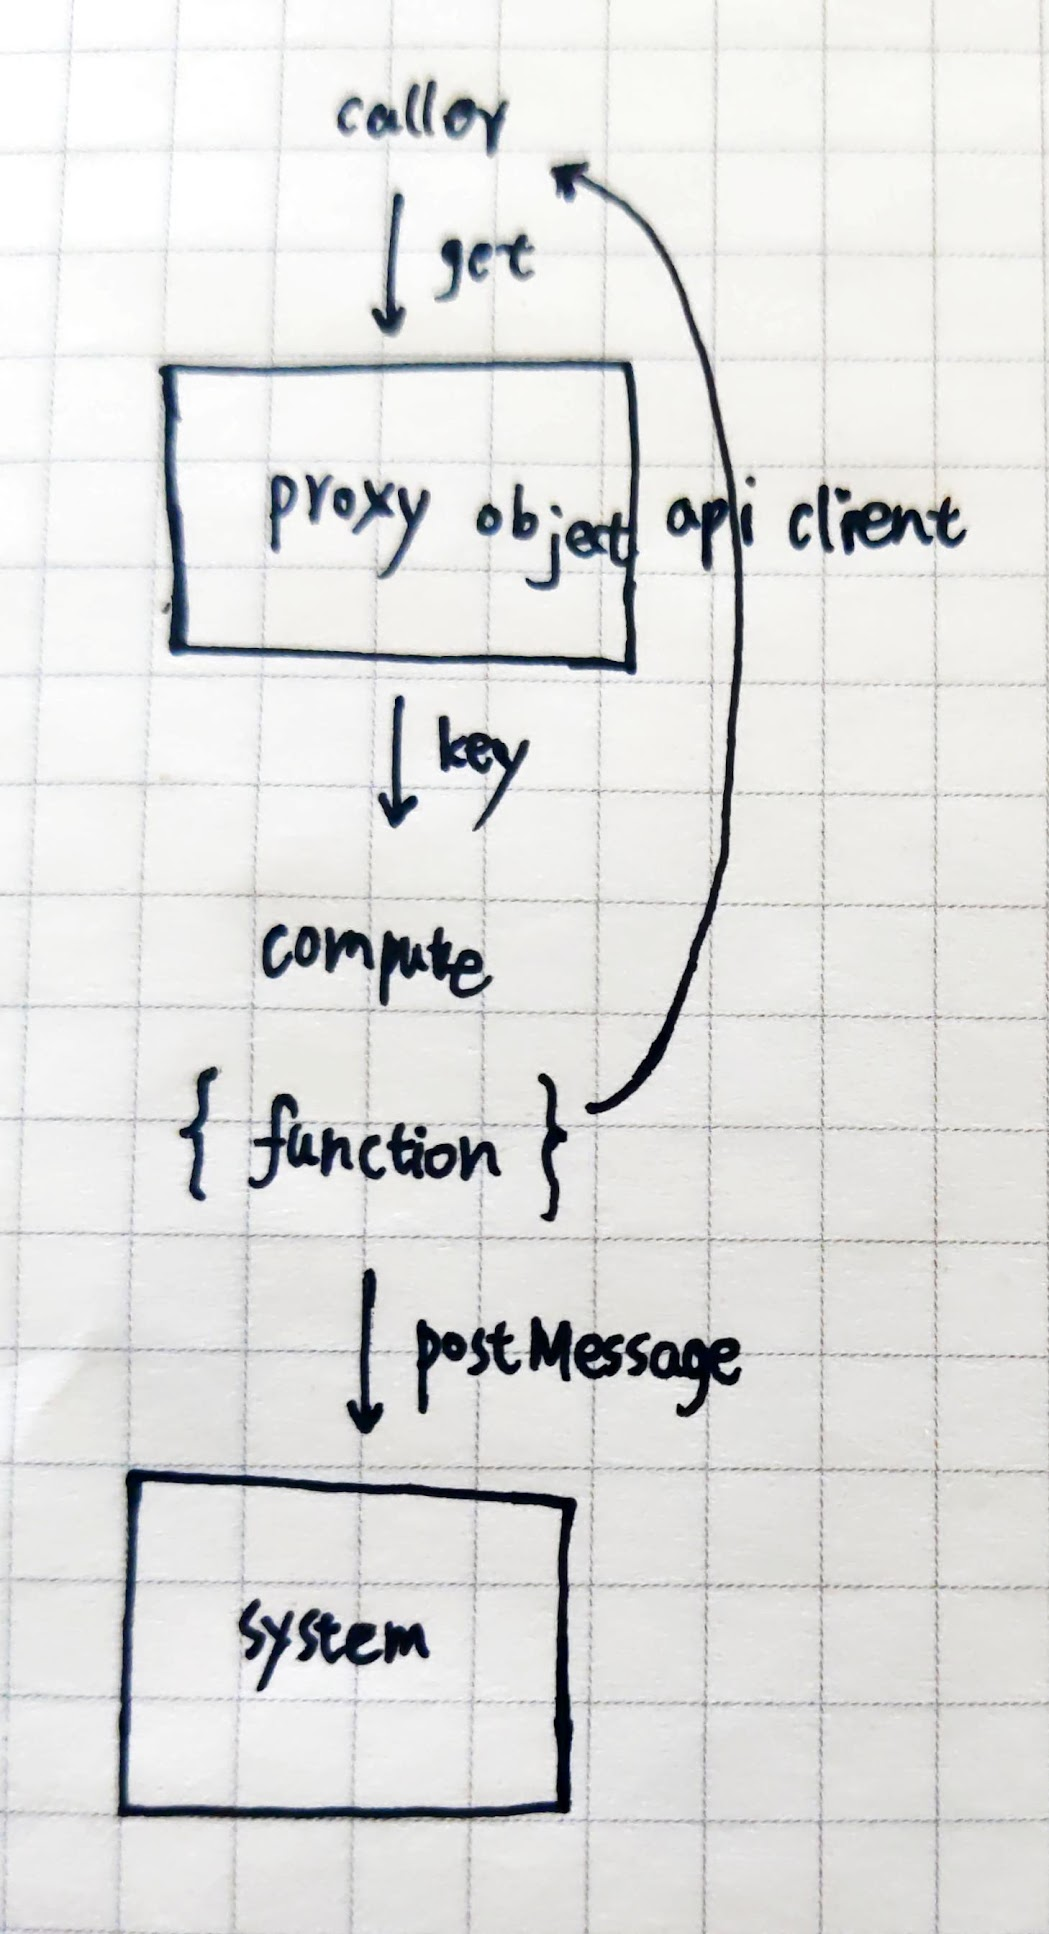 caller
get
proxy object api client
key
compute
{ function }
postMessage
system